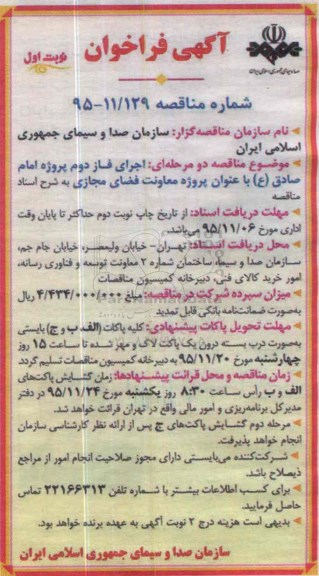 آگهی فراخوان
نوبت اول
شماره مناقصه ۹۵-۱۱/۱۲۹
نام سازمان مناقصه‌گزار: سازمان صدا و سیمای جمهوری
اسلامی ایران
موضـوع مناقصه دو مرحله‌ای: اجرای فـاز دوم پروژه امام
صادق (ع) با عنوان پروژه معاونت فضای مجازی به شرح اسناد
مناقصه
مهلت دریافت اسناد: از تاریخ چاپ نوبت دوم حداکثر تا پایان وقت
اداری مورخ ۹۵/۱۱/۰۶ می‌باشد.
محل دریافت اسـناد: تهـران- خیابان ولیعصـر، خیابان جام جم،
سازمان صدا و سیما، ساختمان شماره ۲ معاونت توسعه و فناوری رسانه،
امور خرید کالای فنی، دبیرخانه کمیسیون مناقصات
میزان سپرده شرکت در مناقصه: مبلغ ۴/۴۳۴/۰۰۰/۰۰۰ ریال
به‌صورت ضمانت‌نامه بانکی قابل تمدید
مهلت تحویل پاکات پیشنهادی: کلیه پاکات (الف، ب و ج) بایستی
به‌صورت درب بسـته درون یک پاکت لاک و مهر شده تا ساعت ۱۵ روز
چهارشنبه مورخ ۹۵/۱۱/۲۰ به دبیرخانه کمیسیون مناقصات تسلیم گردد
زمان مناقصه و محل قرائت پیشـنهادها: زمان گشایش پاکت‌های
الف و ب رأس ساعت ۸:۳۰ روز یکشنبه مورخ ۹۵/۱۱/۲۴ در دفتر
مدیرکل برنامه‌ریزی و امور مالی واقع در تهران قرائت خواهد شد.
مرحله دوم گشـایش پاکت‌های ج پس از ارائه نظر کارشناسی سازمان
انجام خواهد پذیرفت.
شـرکت‌کننده می‌بایستی دارای مجوز صلاحیت انجام امور از مراجع
ذیصلاح باشد.
برای کسـب اطلاعات بیشـتر با شـماره تلفن ۲۲۱۶۶۳۱۳ تماس
حاصل فرمایید.
بدیهی است هزینه درج ۲ نوبت آگهی به عهده برنده خواهد بود.
سازمان صدا و سیمای جمهوری اسلامی ایران